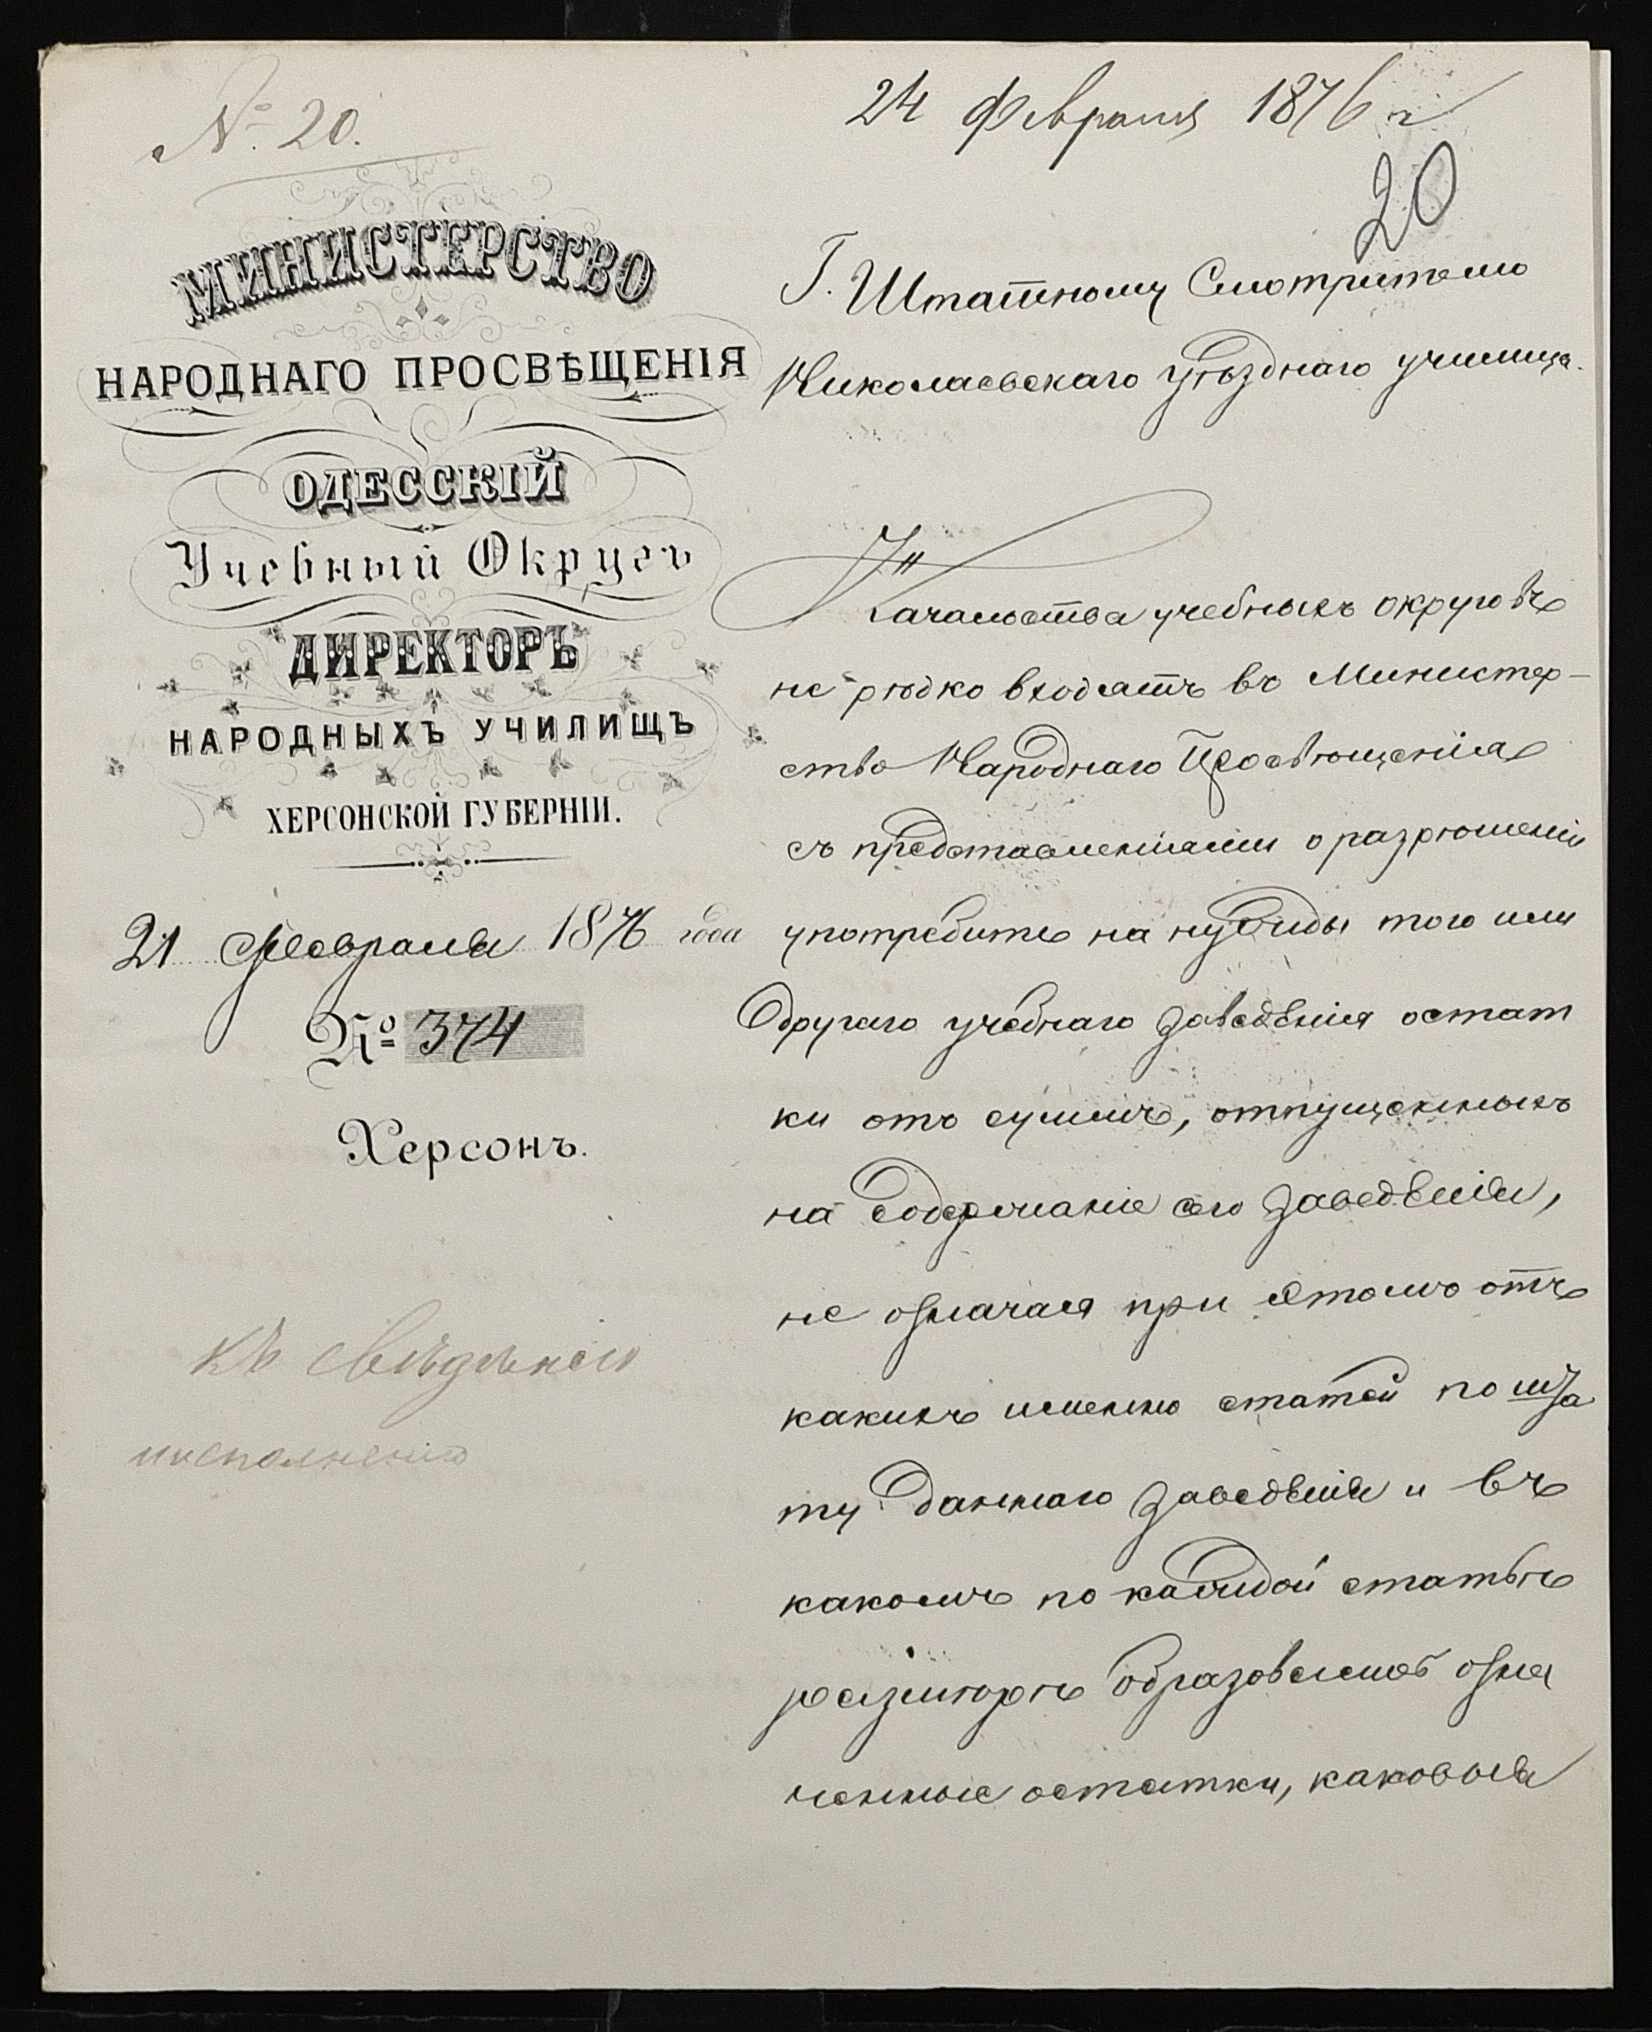 № 20.
24 Февраля 1876 г
20
МИНИСТЕРСТВО
НАРОДНАГО ПРОСВѢЩЕНІЯ
ОДЕССКІЙ
Учебный Округъ
ДИРЕКТОРЪ
НАРОДНЫХЪ УЧИЛИЩЪ
ХЕРСОНСКОЙ ГУБЕРНІИ.
21 Февраля 1876 года
№ 374
Херсонъ.
къ свѣдѣнію
и исполненію
Г. Штатному Смотрителю
Николаевскаго уѣзднаго училища.
Начальства учебныхъ округовъ
не рѣдко входятъ въ Министер-
ство Народнаго Просвѣщенія
съ представленіями о разрѣшеніи
употребить на нужды того или
другаго учебнаго заведенія остат
ки отъ суммъ, отпущенныхъ
на содержаніе сего заведенія,
не означая при этомъ отъ
какихъ именно статей по шта
ту даннаго заведенія и въ
какомъ по каждой статьѣ
размѣрѣ образовались озна
ченные остатки, каковыя